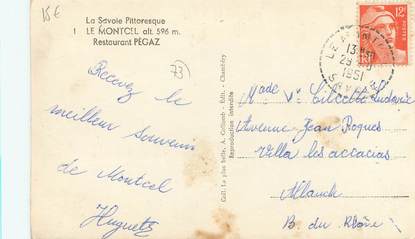 15€
La Savoie Pittoresque
1 LE MONTCEL alt. 596 m.
Restaurant PÉGAZ
73
Recevez le
meilleur souvenir
de Montcel
Huguette
Coll. Le plus belle, A. Gallomb - Edit. - Chambéry
Reproduction interdite
12F
LE MONTCEL
1951
SAVOIE
Made Vve
Avenue Jean Roques
Villa les accacias
Allauch
B. du Rhône